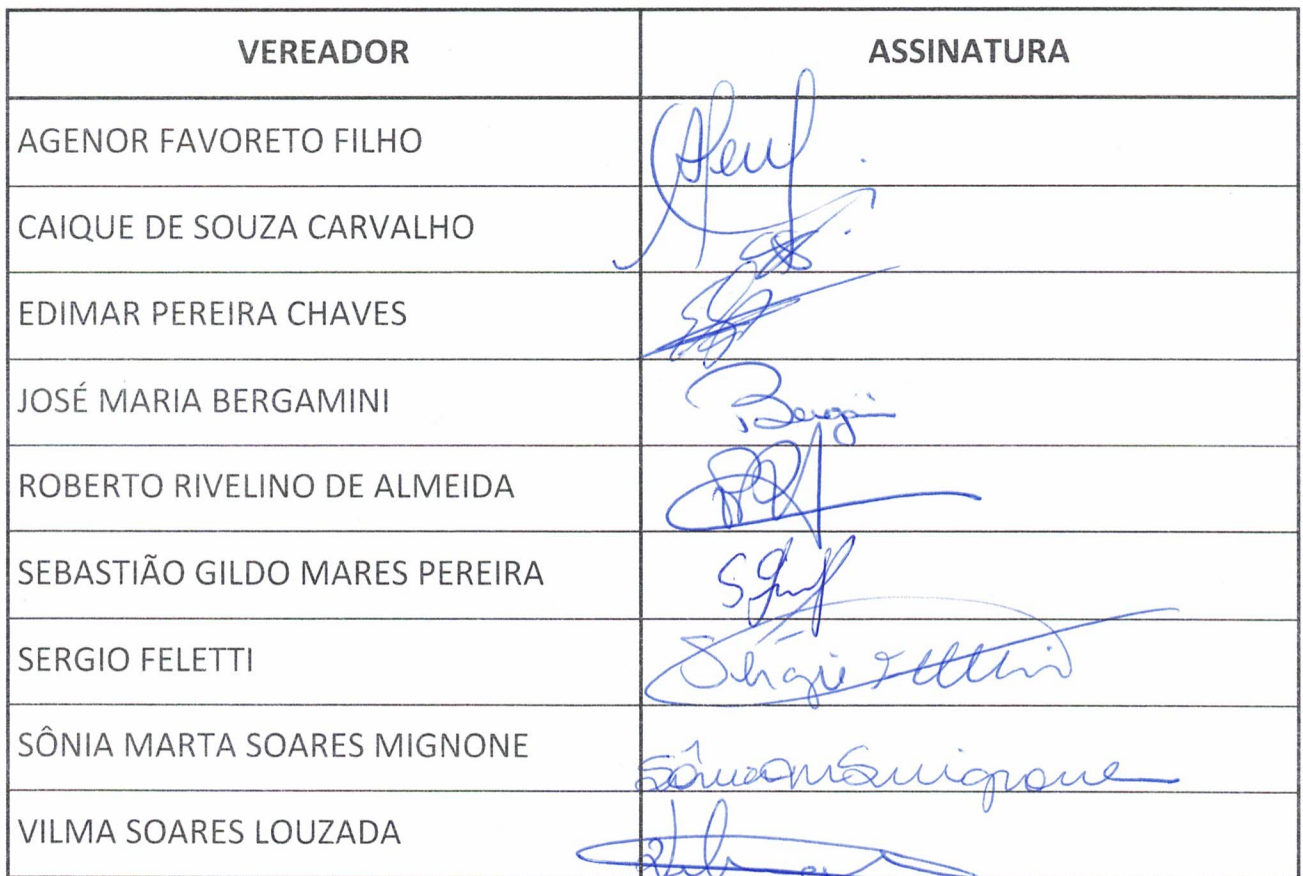 VEREADOR ASSINATURA
AGENOR FAVORETO FILHO
CAIQUE DE SOUZA CARVALHO
EDIMAR PEREIRA CHAVES
JOSÉ MARIA BERGAMINI
ROBERTO RIVELINO DE ALMEIDA
SEBASTIÃO GILDO MARES PEREIRA
SERGIO FELETTI Sérgio
SÔNIA MARTA SOARES MIGNONE
VILMA SOARES LOUZADA